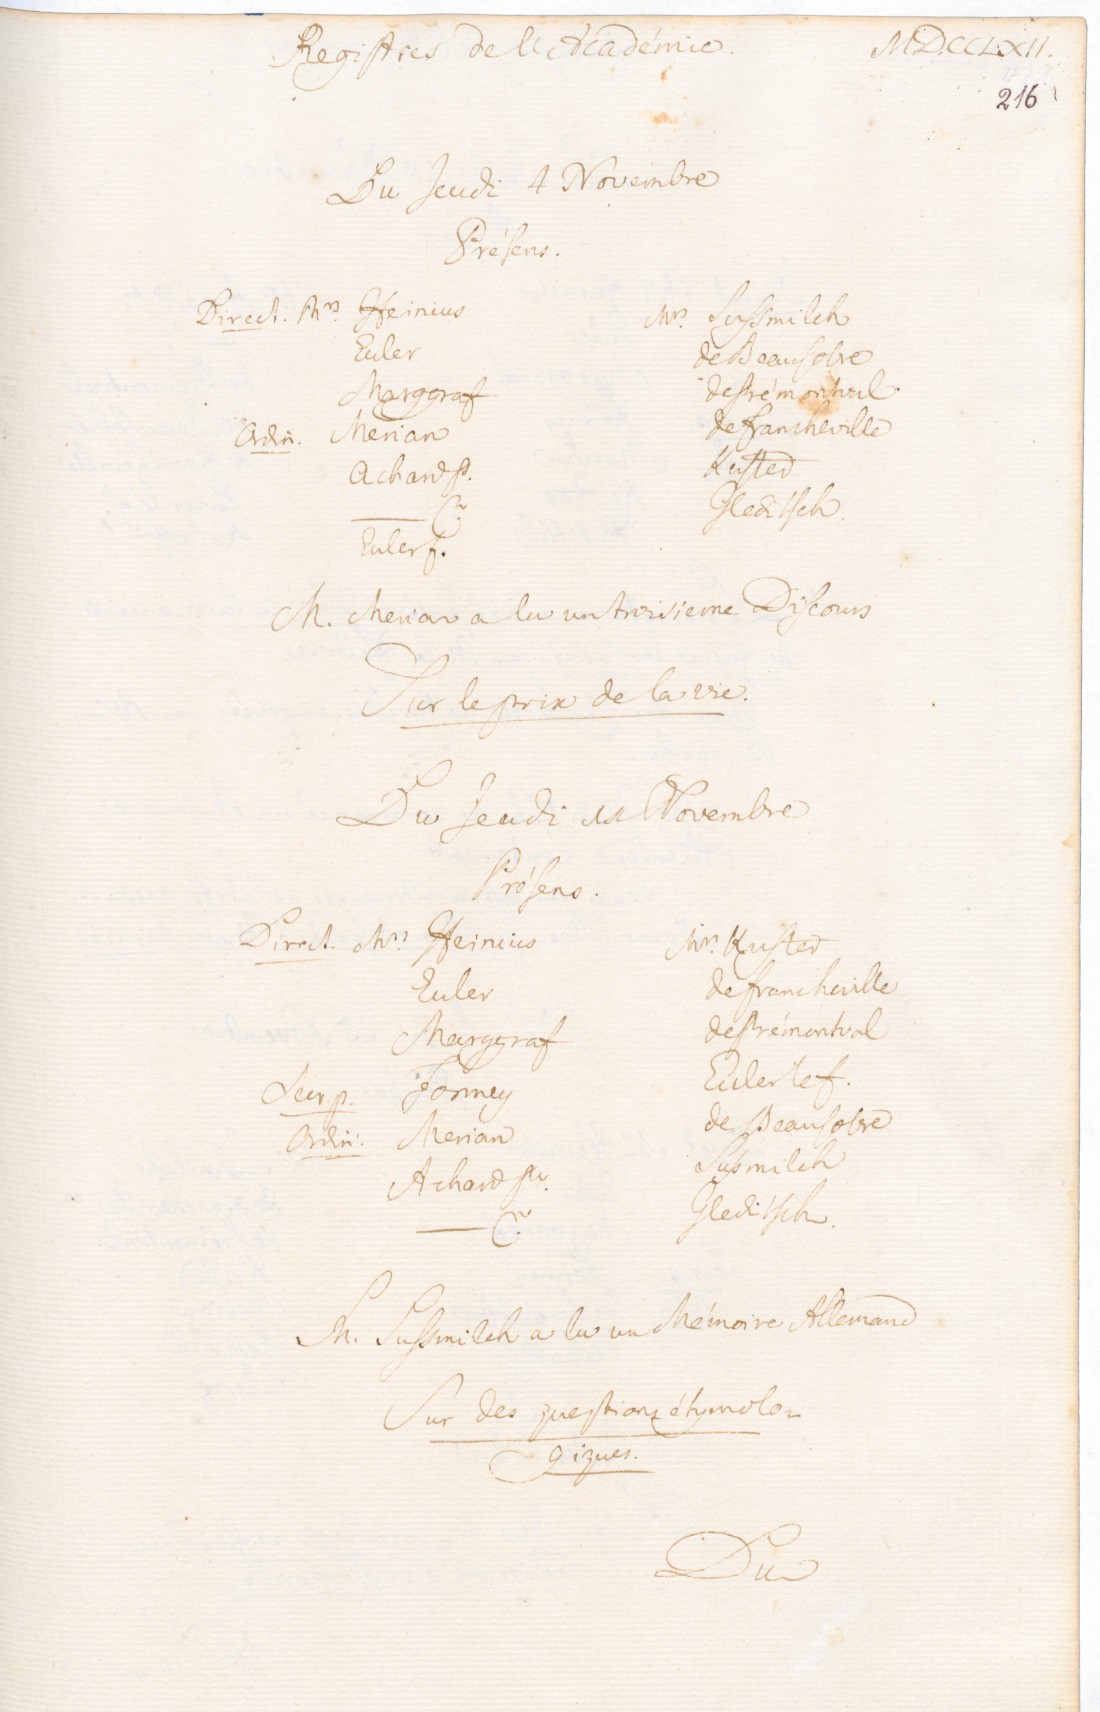 Registres de l'Académie. MDCCLXII.
216
Du Jeudi 4 Novembre
Présens.
Direct. Mrs. Heinius
Euler
Marggraf
Ordin. Merian
Achard p.
——— Cr.
Euler f.
Mrs. Sussmilch
de Beausobre
de Prémontval
de Francheville
Kuster
Gleditsch.
M. Merian a lu un troisieme Discours
Sur le prix de la vie.
Du Jeudi 11 Novembre
Présens.
Direct. Mrs. Heinius
Euler
Marggraf
Secr. p. Formey
Ordin. Merian
Achard pr.
——— Cr.
Mrs. Kuster
de Francheville
de Prémontval
Euler le f.
de Beausobre
Susmilch
Gleditsch.
M. Sussmilch a lu un Mémoire Allemand
Sur des questions étymolo-
giques.
Du